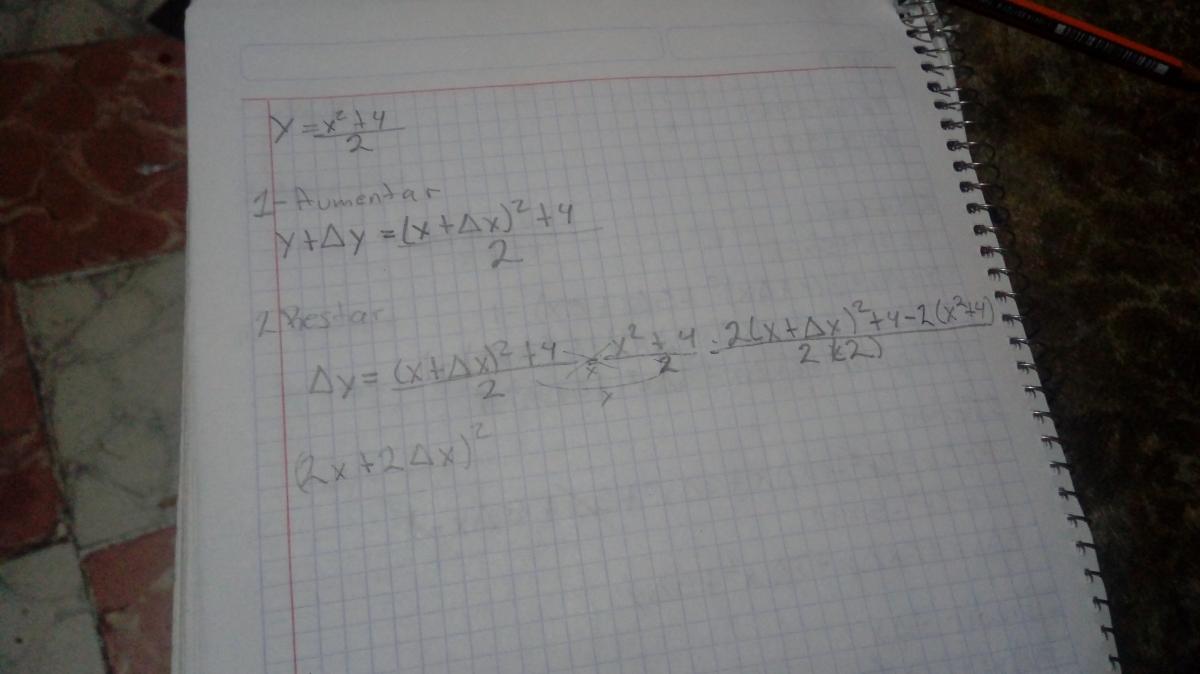 y = x²+4 / 2
1-Aumentar
y+Δy = (x+Δx)²+4 / 2
2 Restar
Δy = (x+Δx)²+4 / 2 - x²+4 / 2 = 2(x+Δx)²+4-2(x²+4) / 2(2)
(2x+2Δx)²